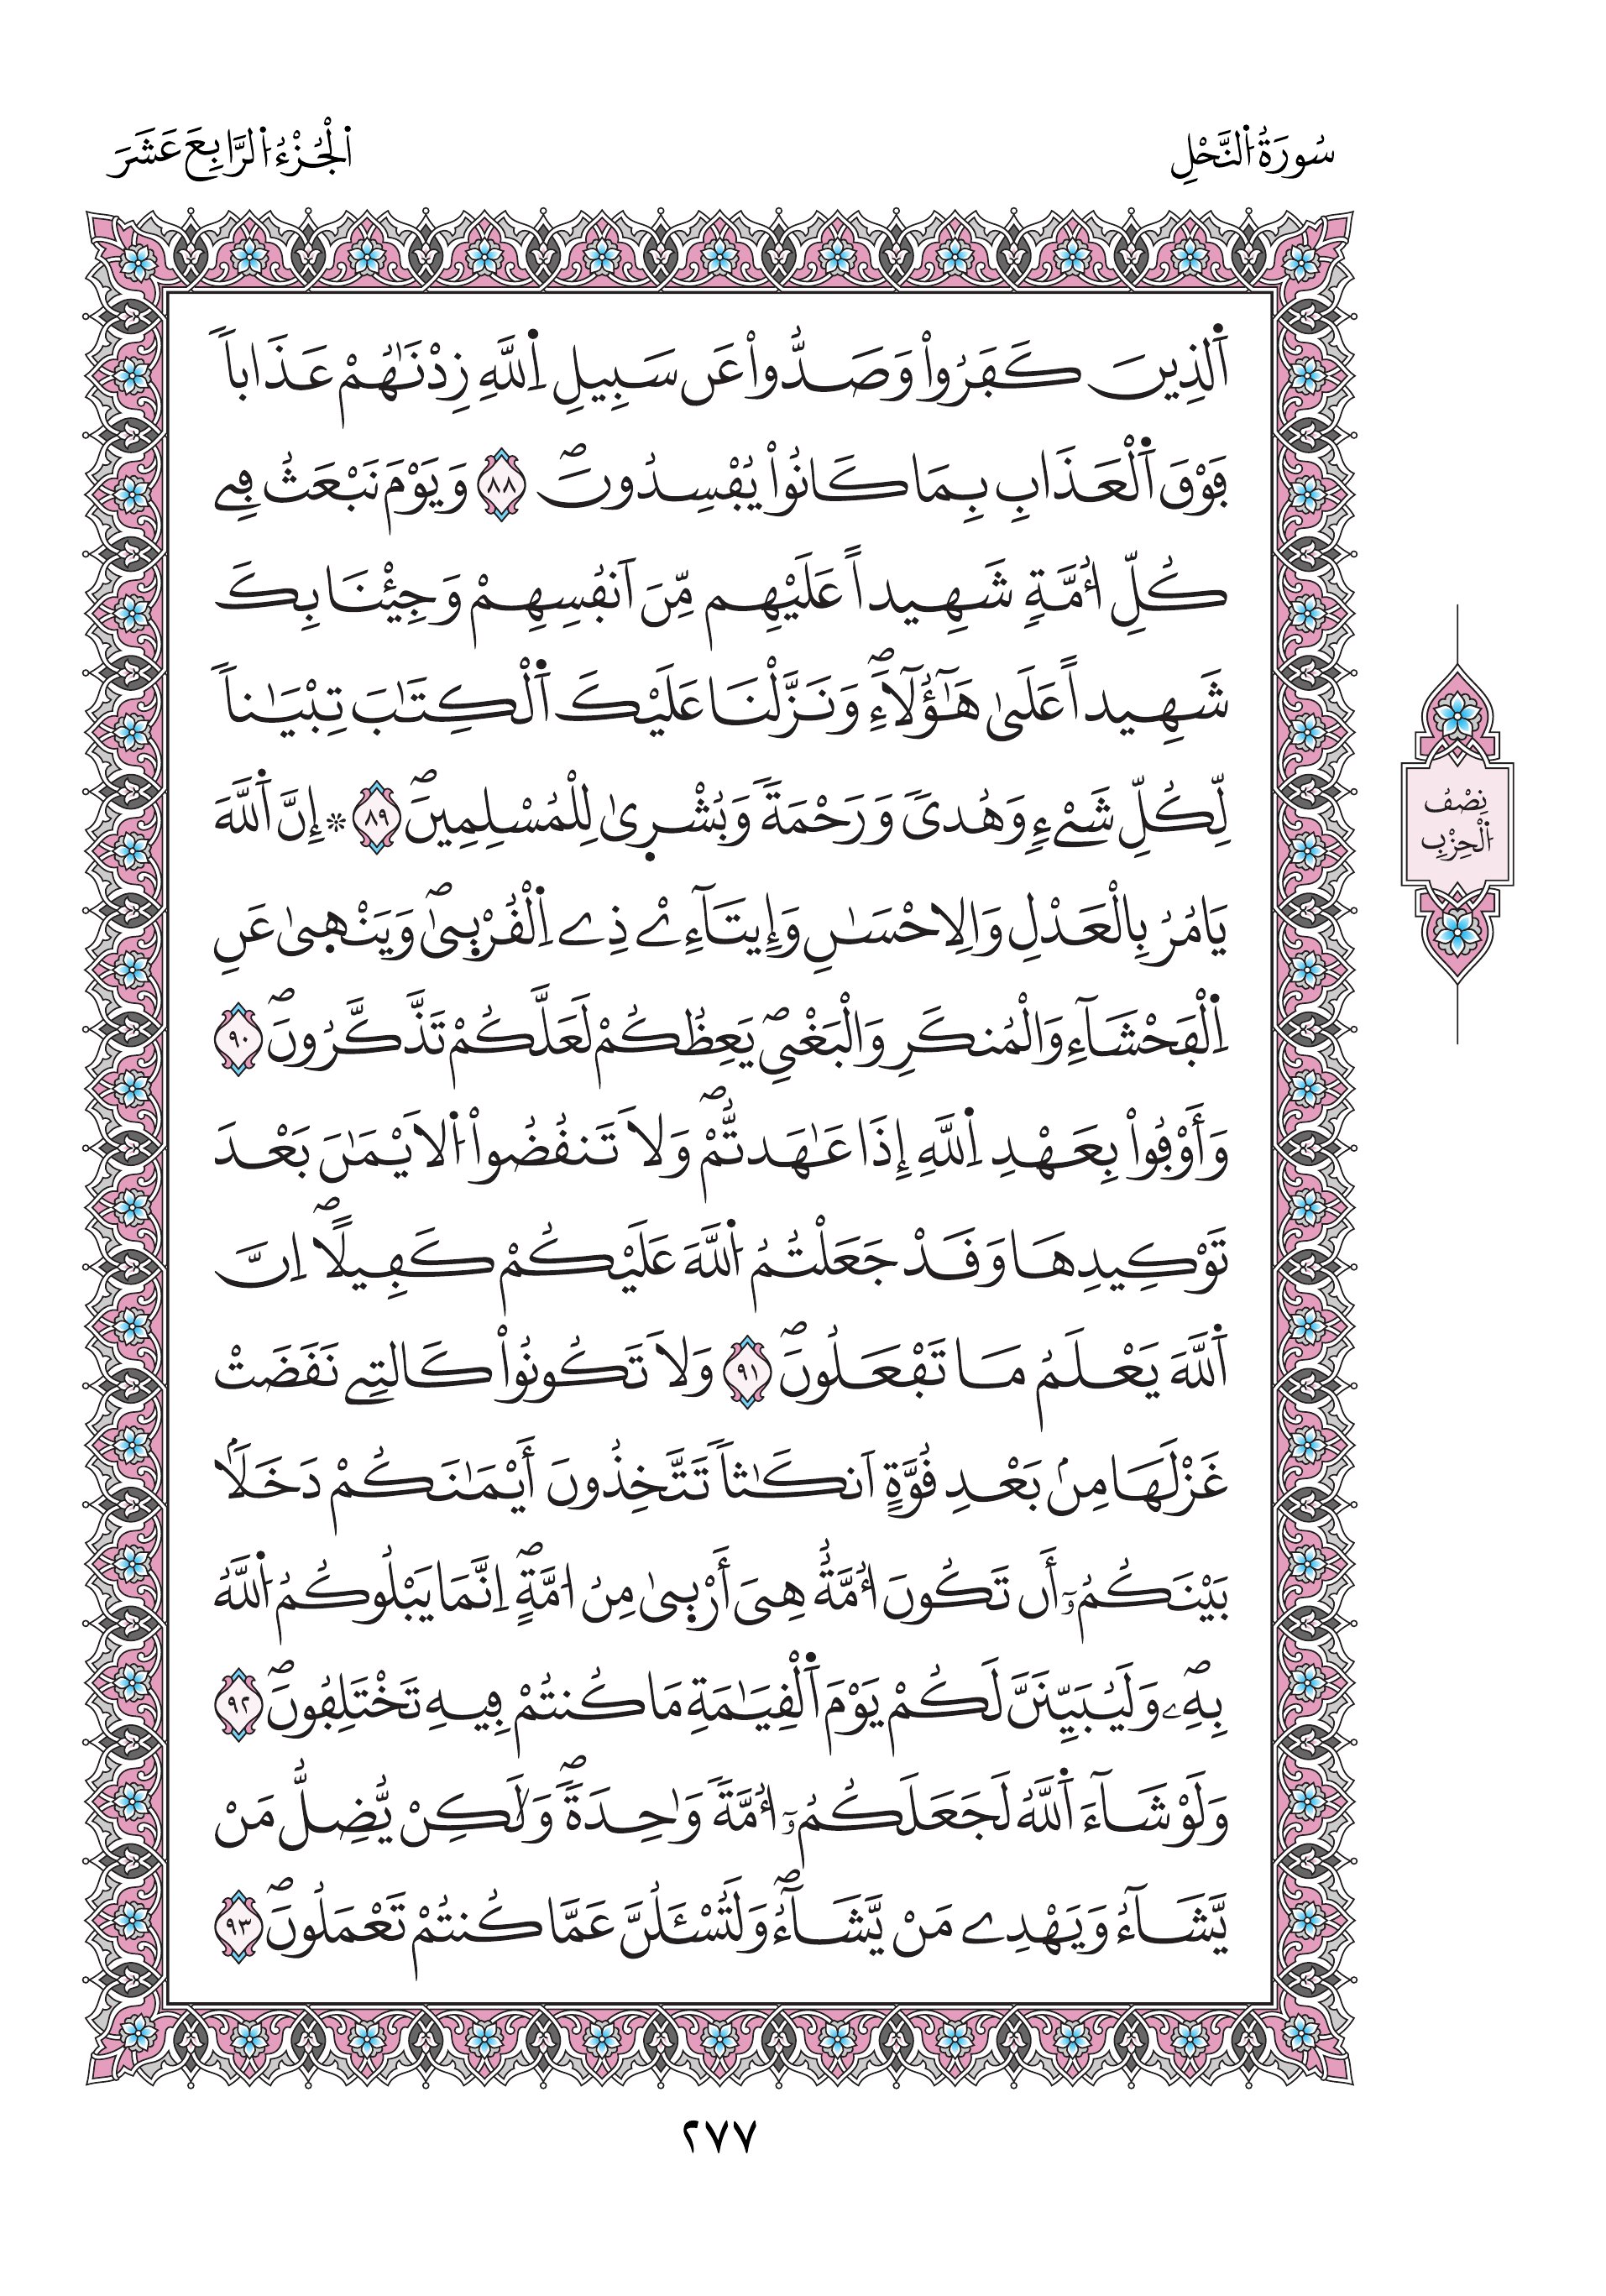 سُورَةُ النَّحْلِ
الْجُزْءُ الرَّابِعَ عَشَرَ
اَ۬لذِينَ كَفَرُواْ وَصَدُّواْ عَن سَبِيلِ اِ۬للَّهِ زِدْنَٰهُمْ عَذَاباٗ
فَوْقَ اَ۬لْعَذَابِ بِمَا كَانُواْ يُفْسِدُونَۖ ٨٨ وَيَوْمَ نَبْعَثُ فِے
كُلِّ أُمَّةٖ شَهِيداً عَلَيْهِم مِّنَ اَنفُسِهِمْ وَجِئْنَا بِكَ
شَهِيداً عَلَىٰ هَٰٓؤُلَآءِۖ وَنَزَّلْنَا عَلَيْكَ اَ۬لْكِتَٰبَ تِبْيَٰناٗ
لِّكُلِّ شَےْءٖ وَهُدىٗ وَرَحْمَةٗ وَبُشْر۪ىٰ لِلْمُسْلِمِينَۖ ٨٩ * إِنَّ اَ۬للَّهَ
يَامُرُ بِالْعَدْلِ وَالِاحْسَٰنِ وَإِيتَآءِےْ ذِے اِ۬لْقُرْب۪ىٰۖ وَيَنْه۪ىٰ عَنِ
اِ۬لْفَحْشَآءِ وَالْمُنكَرِ وَالْبَغْيِۖ يَعِظُكُمْ لَعَلَّكُمْ تَذَّكَّرُونَۖ ٩٠
وَأَوْفُواْ بِعَهْدِ اِ۬للَّهِ إِذَا عَٰهَدتُّمْۖ وَلَا تَنقُضُواْ اُ۬لَايْمَٰنَ بَعْدَ
تَوْكِيدِهَا وَقَدْ جَعَلْتُمُ اُ۬للَّهَ عَلَيْكُمْ كَفِيلًاۖ اِنَّ
اَ۬للَّهَ يَعْلَمُ مَا تَفْعَلُونَۖ ٩١ وَلَا تَكُونُواْ كَالتِے نَقَضَتْ
غَزْلَهَا مِنۢ بَعْدِ قُوَّةٍ اَنكَٰثاٗ تَتَّخِذُونَ أَيْمَٰنَكُمْ دَخَلَاۢ
بَيْنَكُمُۥٓ أَن تَكُونَ أُمَّةٌ هِيَ أَرْب۪ىٰ مِنُ ا۟مَّةٍۖ اِنَّمَا يَبْلُوكُمُ اُ۬للَّهُ
بِهِۦۖ وَلَيُبَيِّنَنَّ لَكُمْ يَوْمَ اَ۬لْقِيَٰمَةِ مَا كُنتُمْ فِيهِ تَخْتَلِفُونَۖ ٩٢
وَلَوْ شَآءَ اَ۬للَّهُ لَجَعَلَكُمُۥٓ أُمَّةٗ وَٰحِدَةٗۖ وَلَٰكِنْ يُّضِلُّ مَنْ
يَّشَآءُ وَيَهْدِے مَنْ يَّشَآءُۖ وَلَتُسْـَٔلُنَّ عَمَّا كُنتُمْ تَعْمَلُونَۖ ٩٣
نِصْفُ
الْحِزْبِ
٢٧٧